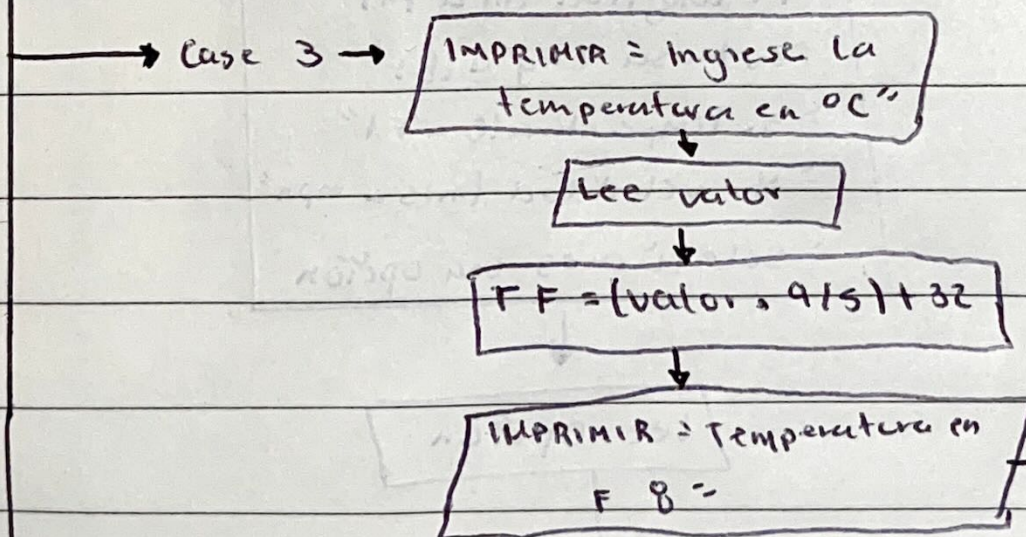 Case 3
IMPRIMIR = Ingrese la
temperatura en °C"
Lee valor
TF = (valor . 9/5) + 32
IMPRIMIR = Temperatura en
F 8 =